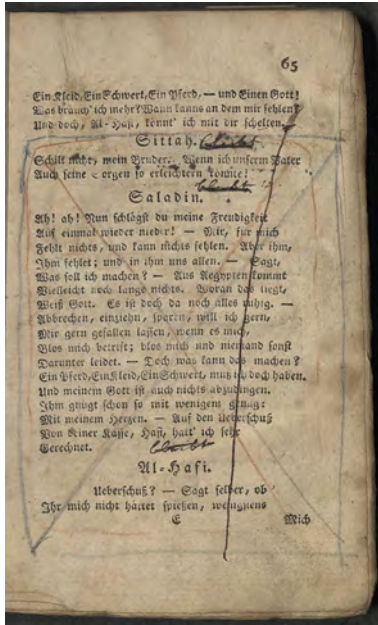 65
Ein Kleid, Ein Schwert, Ein Pferd, — und Einen Gott!
Was brauch' ich mehr? Wann kanns an dem mir fehlen?
Und doch, Al-Hafi, könnt' ich mit dir schelten.
Sittah. bleibt
Schilt nicht, mein Bruder. Wenn ich unserm Vater
Auch seine Sorgen so erleichtern könnte!
bleibt
Saladin.
Ah! ah! Nun schlägst du meine Freudigkeit
Auf einmal wieder nieder! — Mir, für mich
Fehlt nichts, und kann nichts fehlen. Aber ihm,
Ihm fehlet; und in ihm uns allen. — Sagt,
Was soll ich machen? — Aus Aegypten kommt
Vielleicht noch lange nichts. Woran das liegt,
Weiß Gott. Es ist doch da noch alles ruhig. —
Abbrechen, einziehn, sparen, will ich gern,
Mir gern gefallen lassen, wenn es mich,
Blos mich betrift; blos mich und niemand sonst
Darunter leidet. — Doch was kann das machen?
Ein Pferd, Ein Kleid, Ein Schwert, muß ich doch haben.
Und meinem Gott ist auch nichts abzudingen.
Ihm gnügt schon so mit wenigem genug:
Mit meinem Herzen. — Auf den Ueberschuß
Von deiner Kasse, Hafi, hatt' ich sehr
Gerechnet. bleibt
Al-Hafi.
Ueberschuß? — Sagt selber, ob
Ihr mich nicht hättet spießen, wenigstens
E Mich